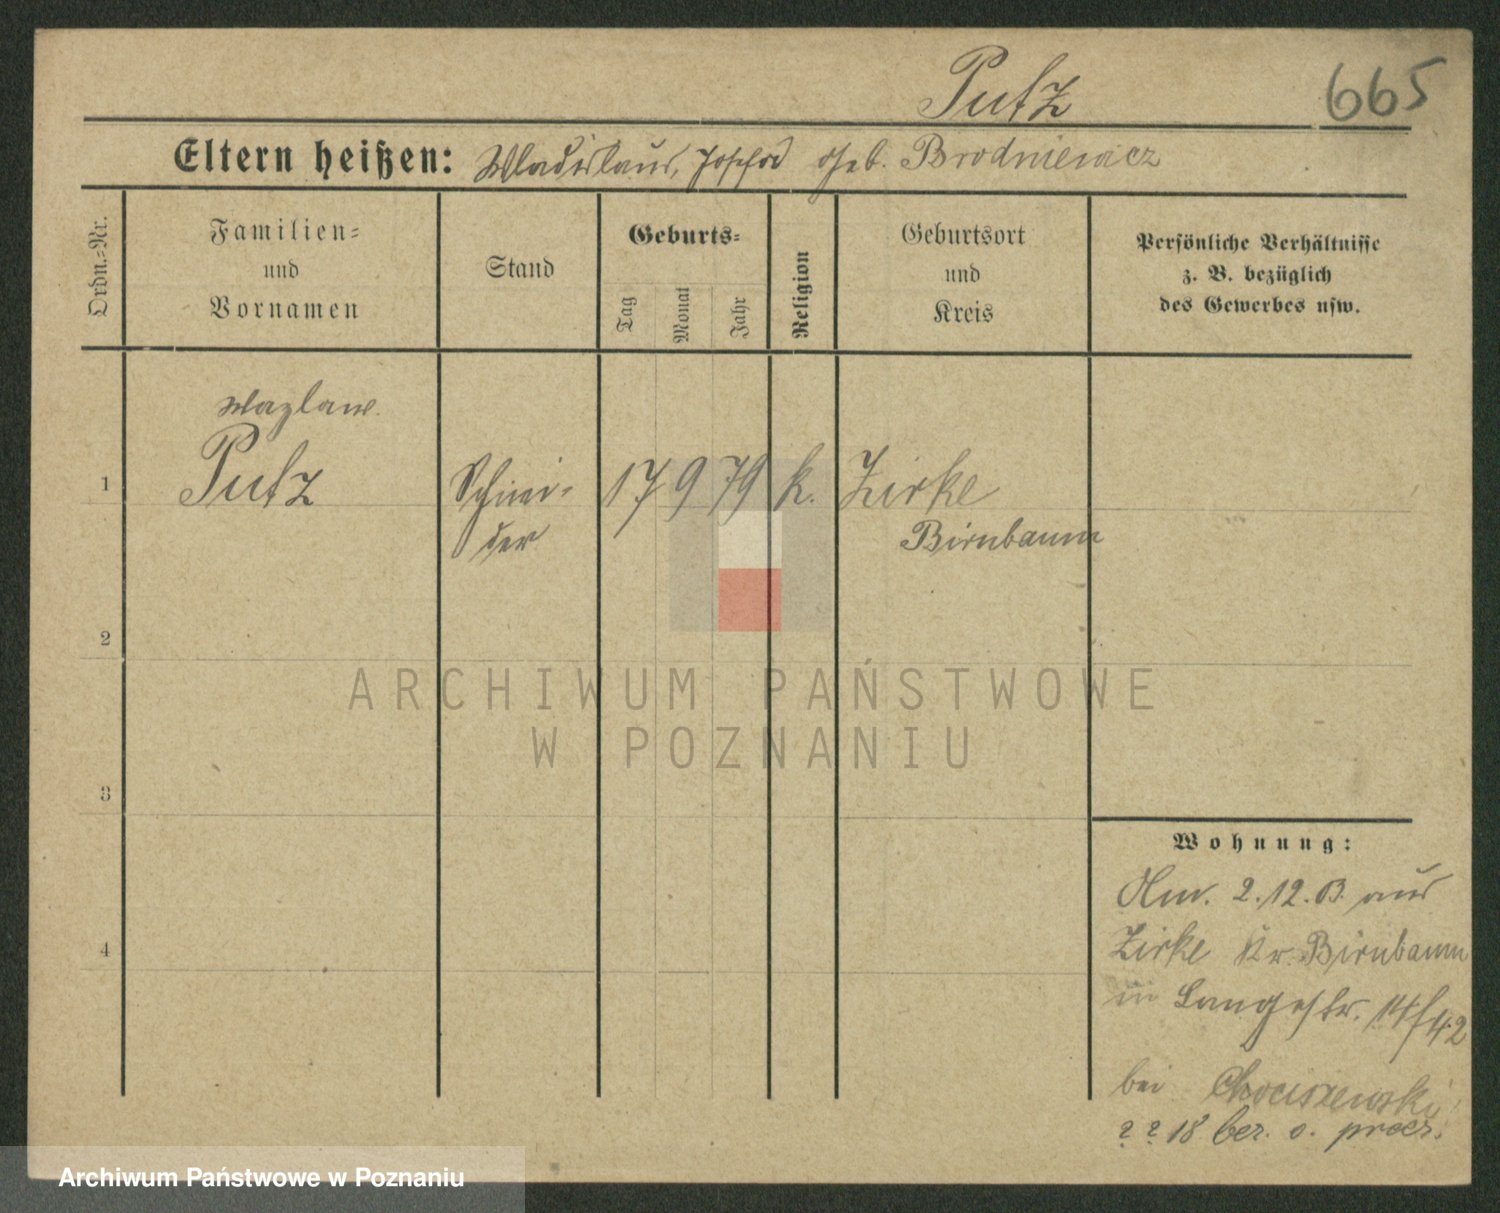 Putz
665
Eltern heißen: Wladislaus, Josefa geb. Brodniewicz
Ordn.-Nr.
Familien-
und
Vornamen
Stand
Geburts-
Tag
Monat
Jahr
Religion
Geburtsort
und
Kreis
Persönliche Verhältnisse
z. B. bezüglich
des Gewerbes usw.
Wazlaw.
1
Putz
Schnei-
der
17 9 79 k.
Zirke
Birnbaum
2
3
4
Wohnung:
2.12.13. aus
Zirke Kr. Birnbaum
in Langestr. 14/42
bei
18 bez.
ARCHIWUM PAŃSTWOWE
W POZNANIU
Archiwum Państwowe w Poznaniu